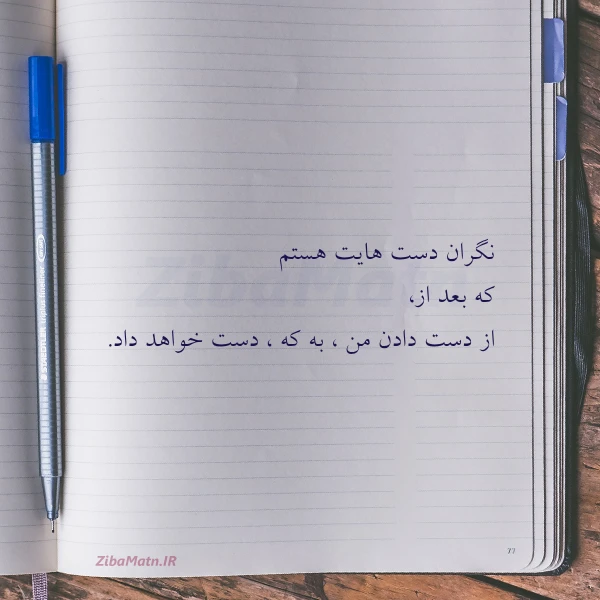 نگران دست هایت هستم
که بعد از،
از دست دادن من ، به که ، دست خواهد داد.
ZibaMatn
ZibaMatn.IR
77